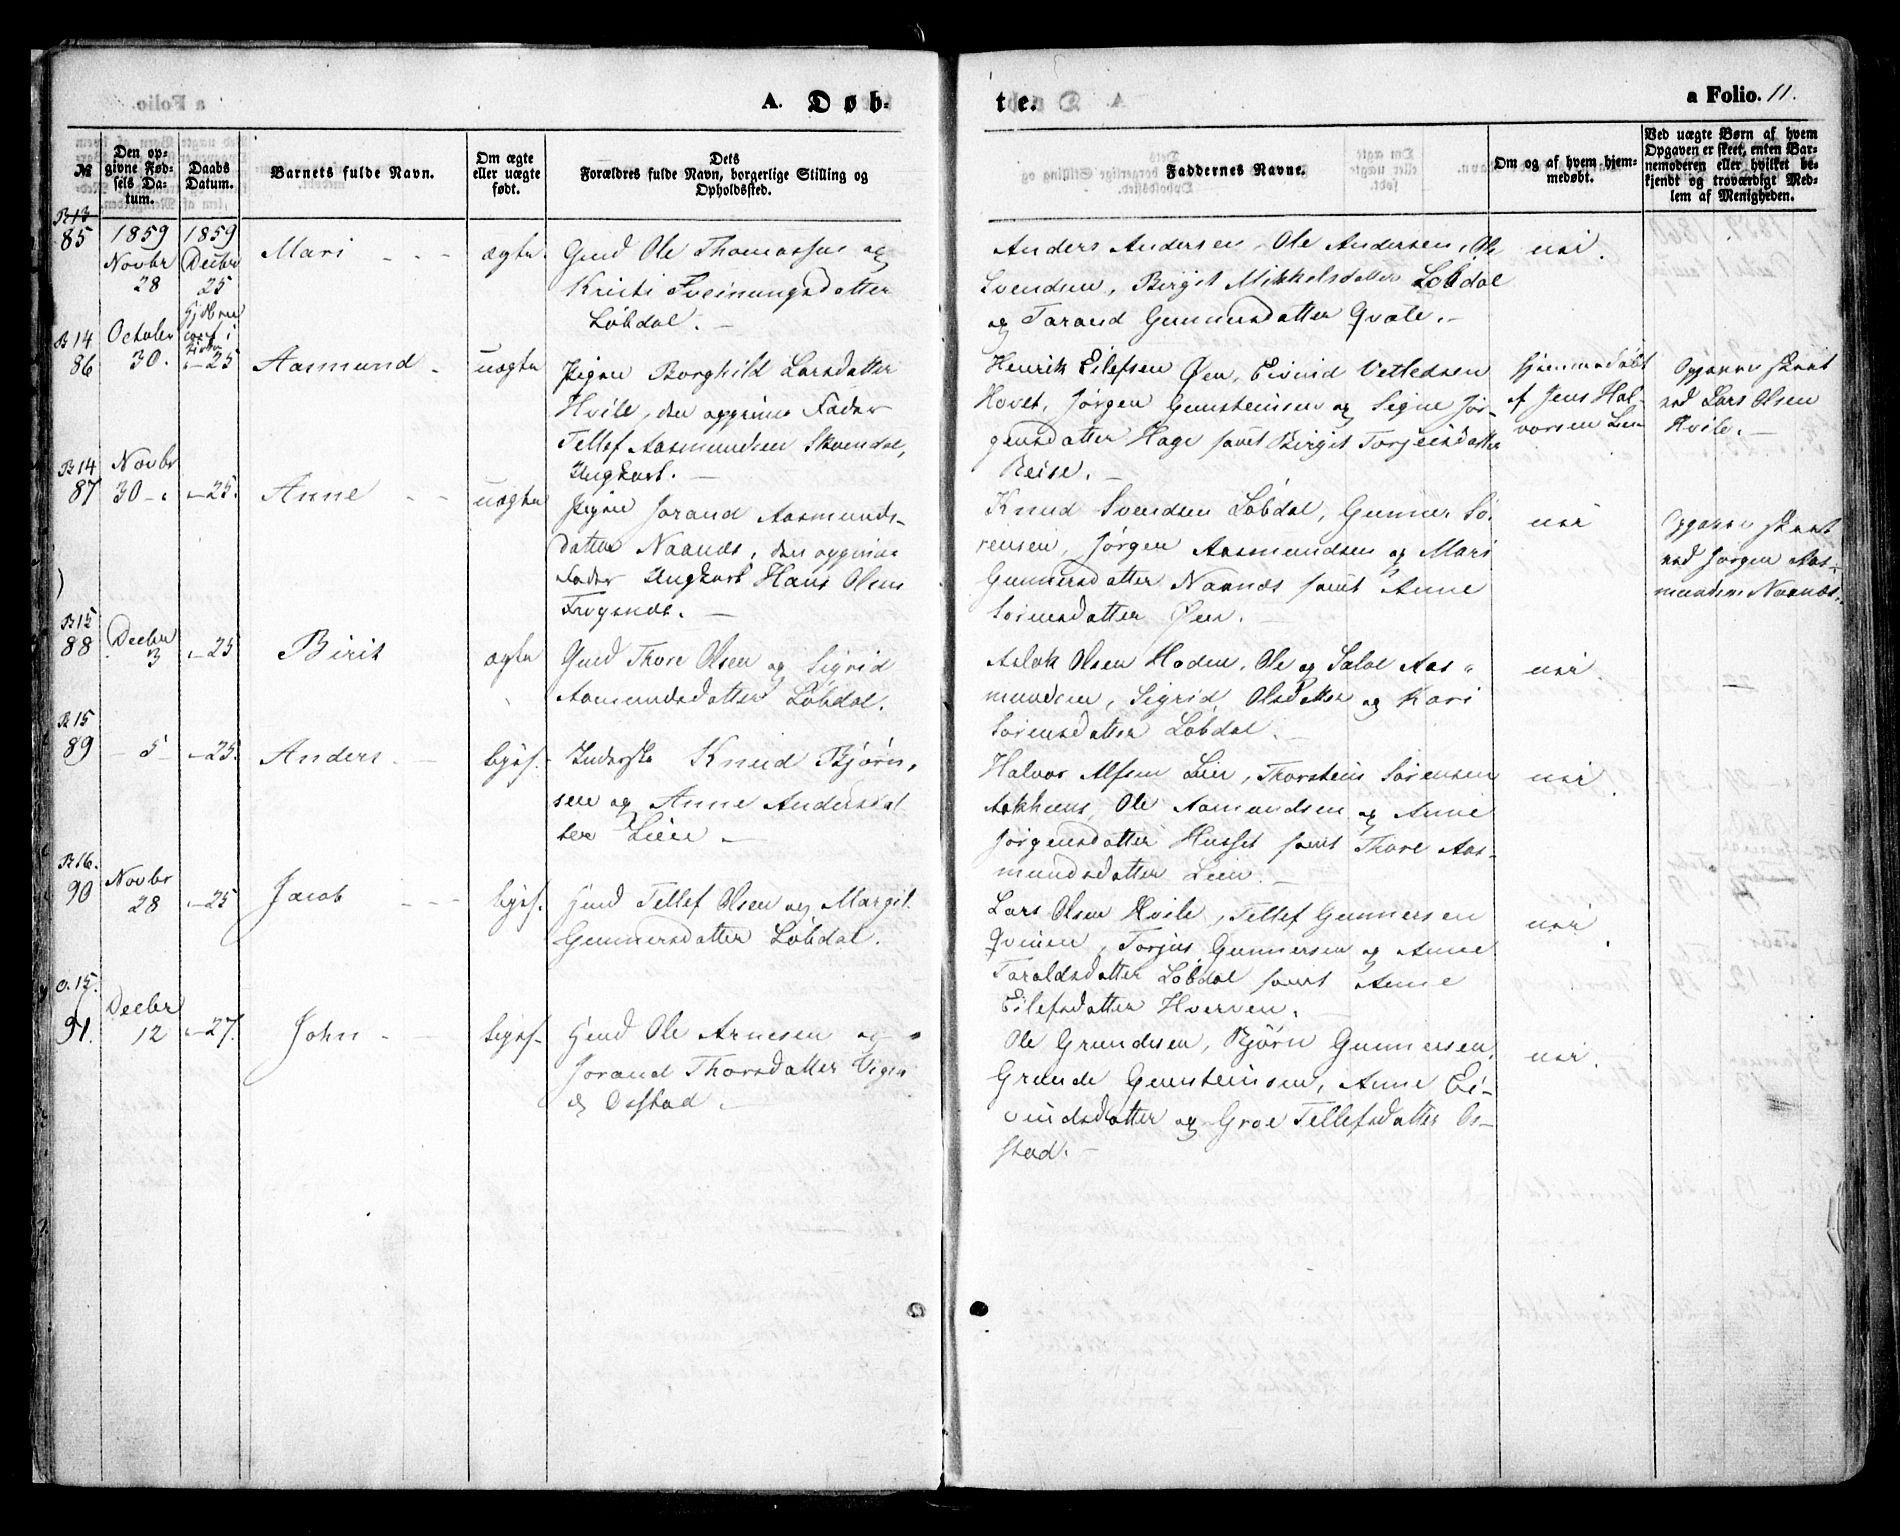 A. Døb-
te.
a Folio. 11.
№
Den op-
givne Fød-
sels Da-
tum.
Daabs
Datum.
Barnets fulde Navn.
Om ægte
eller uægte
født.
Dets
Forældres fulde Navn, borgerlige Stilling og
Opholdssted.
Faddernes Navne.
Om og af hvem hjem-
medøbt.
Ved uægte Børn af hvem
Opgaven er skeet, enten Bar-
nemoderen eller hvilket be-
kjendt og troværdigt Med-
lem af Menigheden.
B 13
85
1859
Novbr
28
1859
Decbr
25
Mari
ægte
Gmd Ole Thomassen og
Kristi Sveinungsdatter
Løbdal. -
Anders Andersen, Ole Andersen, Ole
Svendsen, Birgit Mikkelsdatter Løbdal
og Torand Gunnersdatter Qvale. -
nei.
B 14
86
October
30.
- 25
Aasmund
uægte
Pigen Borghild Larsdatter
Hvile, den opgivne Fader
Tellef Aasmundsen Skvendal,
Ungkarl. -
Henrik Eilefsen Øen, Eivind Vetlesen
Hovet, Jørgen Gunsteinsen og Signe Jør-
gensdatter Hage samt Birgit Torjeisdatter
Reise. -
Hjemmedøbt
af Jens Hal-
vorsen Lien
Opgaven skeet
ved Lars Olsen
Hvile. -
B 14
87
Novbr
30 -
- 25.
Anne
uægte
Pigen Jorand Aasmunds-
datter Naanes, den opgivne
Fader Ungkarl Hans Olsen
Frogsnes. -
Knud Svendsen Løbdal, Gunner Sø-
rensen, Jørgen Aasmundsen og Mari
Gunnersdatter Naanes samt Anne
Sørensdatter Øen. -
nei
Opgaven skeet
ved Jørgen Aas-
mundsen Naanes.
B 15
88
Decbr
3
- 25
Birit
ægte
Gmd Thore Olsen og Sigrid
Aamundsdatter Løbdal.
Aslak Olsen Hoden, Ole og Salve Aas-
mundsen, Sigrid Olsdatter og Kari
Sørensdatter Løbdal. -
nei.
B 15
89
- 5 -
- 25.
Anders
liges. -
Inderste Knud Bjørn-
sen og Anne Andersdat-
ter Lien -
Halvor Alfsen Lien, Thorstein Sørensen
Askhuus, Ole Aamundsen og Anne
Jørgensdatter Husset samt Thore Aas-
mundsdatter Lien. -
nei.
B 16.
90
Novbr
28
- 25
Jacob
liges.
Gmd Tellef Olsen og Margit
Gunnersdatter Løbdal.
Lars Olsen Hvile, Tellef Gunnersen
Qvinen, Torjus Gunnersen og Anne
Taraldsdatter Løbdal samt Anne
Eilefsdatter Hverven. -
nei.
O. 15.
91.
Decbr
12
- 27.
John
liges. -
Gmd Ole Arnesen og
Jorand Thorsdatter
Osstad -
Ole Grundesen, Bjørn Gunnersen,
Grunde Gunsteinsen, Anne Ei-
vindsdatter og Groe Tellefsdatter Os-
stad. -
nei.